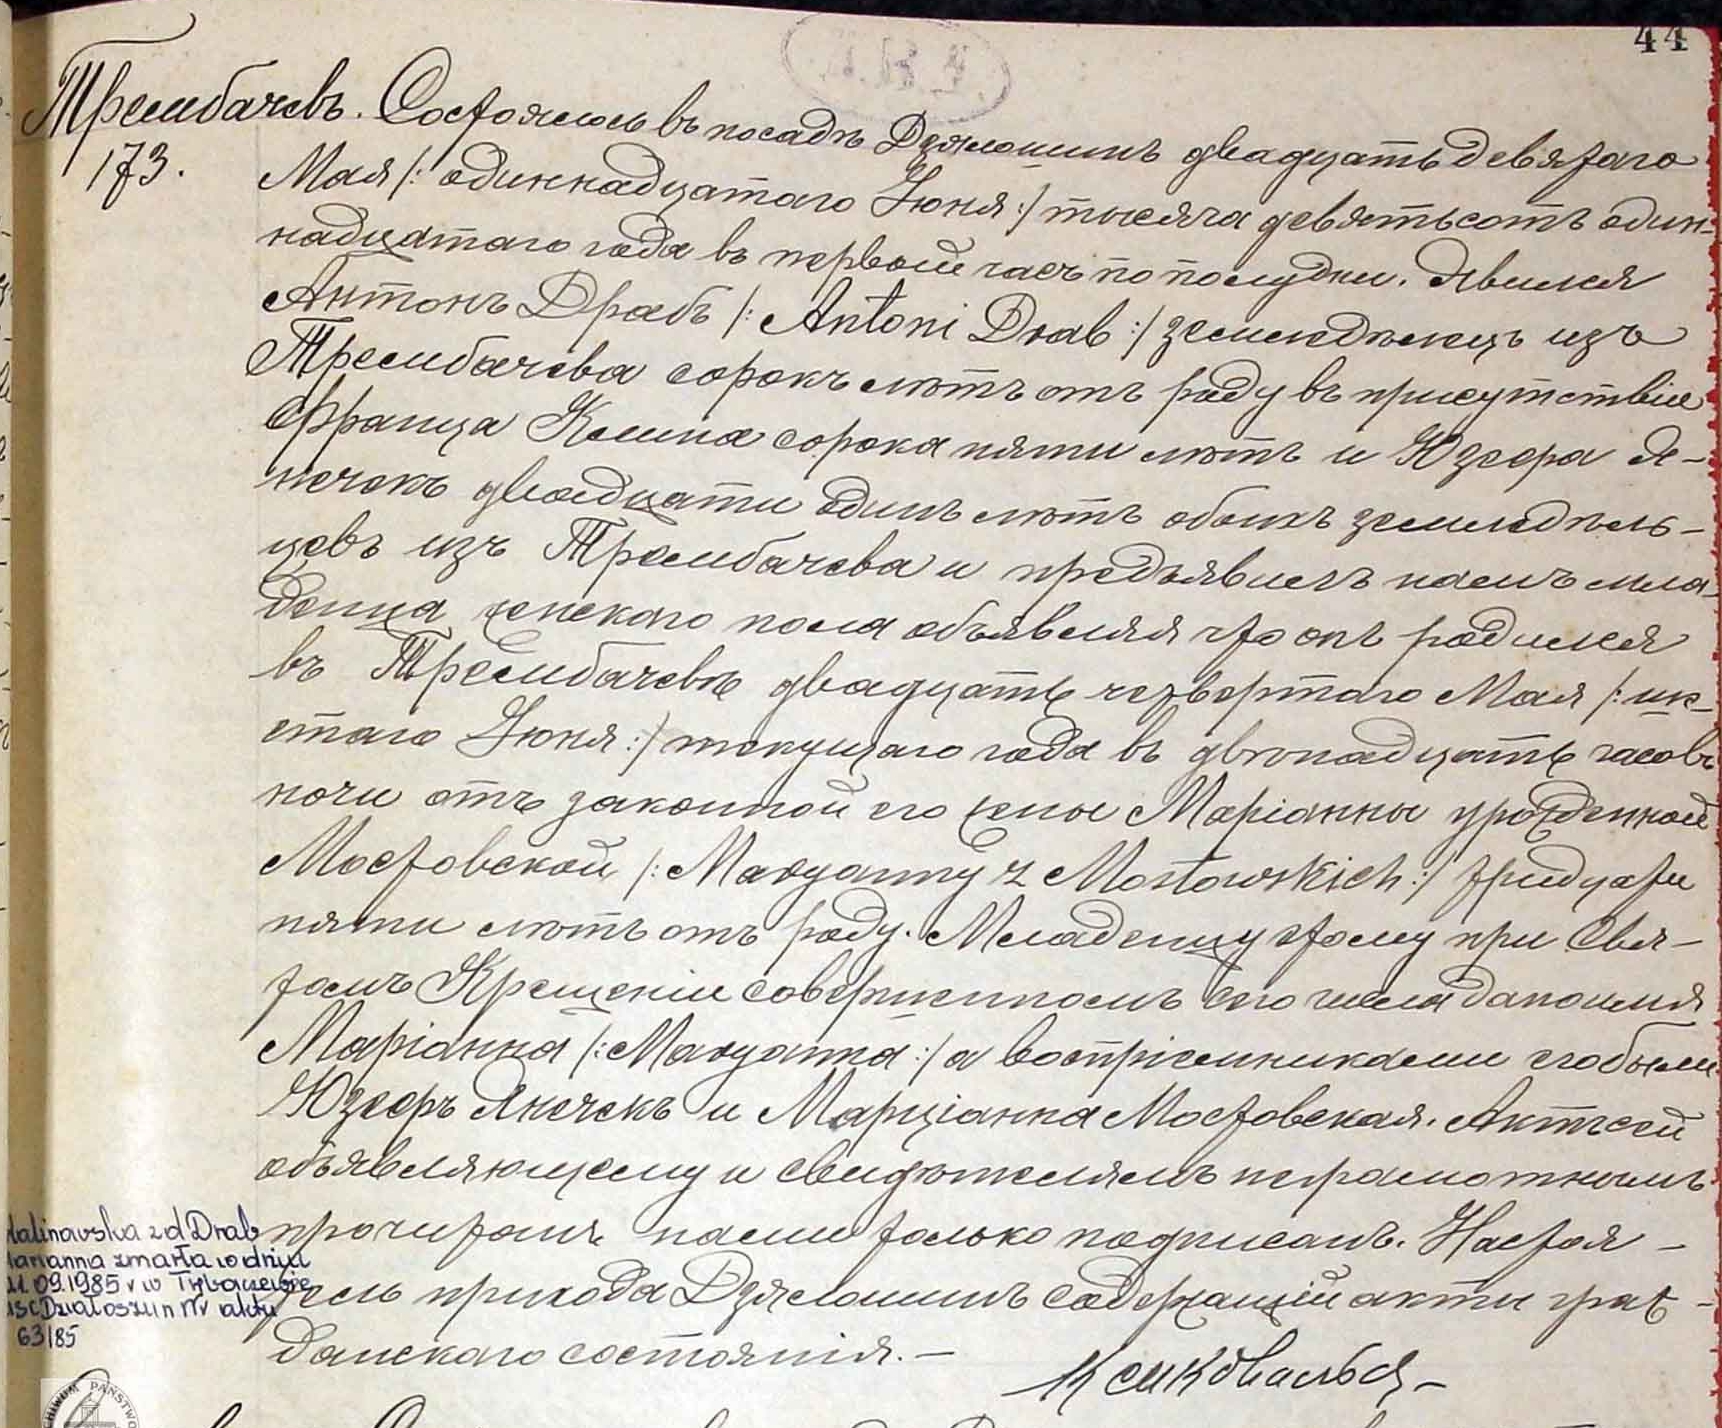 44
Трембачевъ. Состоялось въ посадѣ Дзялошинъ двадцать девятаго
173. Мая /: одиннадцатаго Іюня :/ тысяча девятьсотъ один-
надцатаго года въ первомъ часу по полудни. Явился
Антонъ Драбъ /: Antoni Drab :/ земледѣлецъ изъ
Трембачева сорокъ лѣтъ отъ роду въ присутствіи
Франца Кемпа сорока пяти лѣтъ и Юзефа Я-
нечекъ двадцати одинъ лѣтъ обоихъ земледѣль-
цевъ изъ Трембачева и предъявилъ намъ мла-
денца женскаго пола объявляя что онъ родился
въ Трембачевѣ двадцать четвертаго Мая /: ше-
стаго Іюня :/ текущаго года въ двѣнадцать часовъ
ночи отъ законной его жены Маріанны урожденной
Мостовской /: Maryanny z Mostowskich :/ тридцати
пяти лѣтъ отъ роду. Младенцу этому при Свя-
томъ Крещеніи совершенномъ сего числа дано имя
Маріанна /: Maryanna :/ а воспріемниками его были
Юзефъ Янечекъ и Марціанна Мостовская. Актъ сей
объявляющему и свидѣтелямъ неграмотнымъ
прочитанъ нами только подписанъ. Настоя-
тель прихода Дзялошинъ содержащій акты граж-
данскаго состоянія. —
Malinowska zd Drab
Marianna zmarła w dniu
21.09.1985 r w Trębaczewie
usc Działoszyn Nr aktu
63/85
ARCHIWUM PAŃSTWO